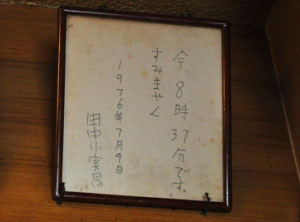 今、8時37分です。
すみません
1976年7月9日
田中小実昌